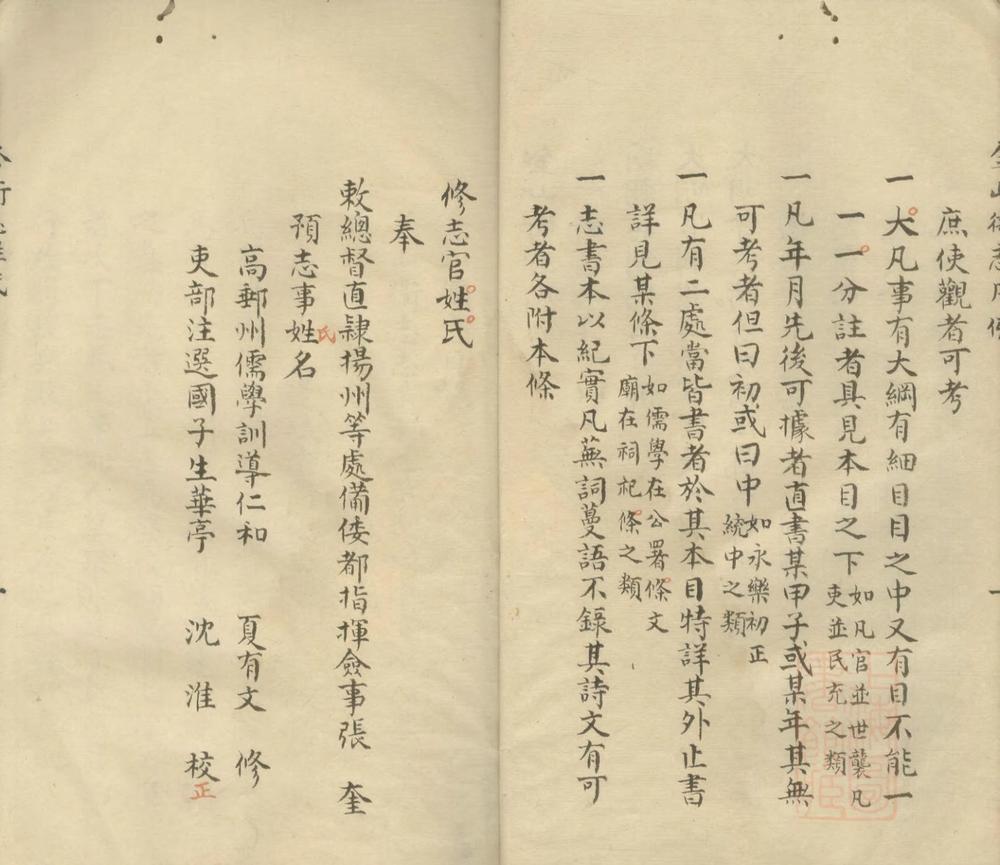 庶使觀者可考
一大凡事有大綱有細目目之中又有目不能一
一一分註者具見本目之下如凡官並世襲凡
吏並民充之類
一凡年月先後可據者直書某甲子或某年其無
可考者但曰初或曰中如永樂初正
統中之類
一凡有二處當皆書者於其本目特詳其外止書
詳見某條下如儒學在公署條文
廟在祠祀條之類
一志書本以紀實凡蕪詞蔓語不錄其詩文有可
考者各附本條
修志官姓氏
奉
敕總督直隸揚州等處備倭都指揮僉事張奎
預志事姓名
氏
高郵州儒學訓導仁和 夏有文 修
吏部注選國子生華亭 沈淮 校
正